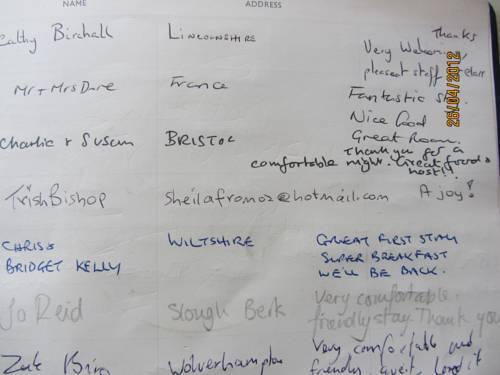 NAME ADDRESS
Cathy Birchall LINCOLNSHIRE Thanks
Very Welcoming,
pleasant staff
Mr + Mrs Dare France Fantastic
Nice food
Charlie + Susan BRISTOL Great Room.
Thank you for a
comfortable night. Great food &
host!!
Trish Bishop sheilafromoz@hotmail.com A joy!
CHRIS & WILTSHIRE GREAT FIRST STAY
BRIDGET KELLY SUPER BREAKFAST
WE'LL BE BACK.
Jo Reid Slough Berk Very comfortable
friendly stay. Thank you
Wolverhampton Very comfortable and
friendly, quiet, loved it
26/04/2012